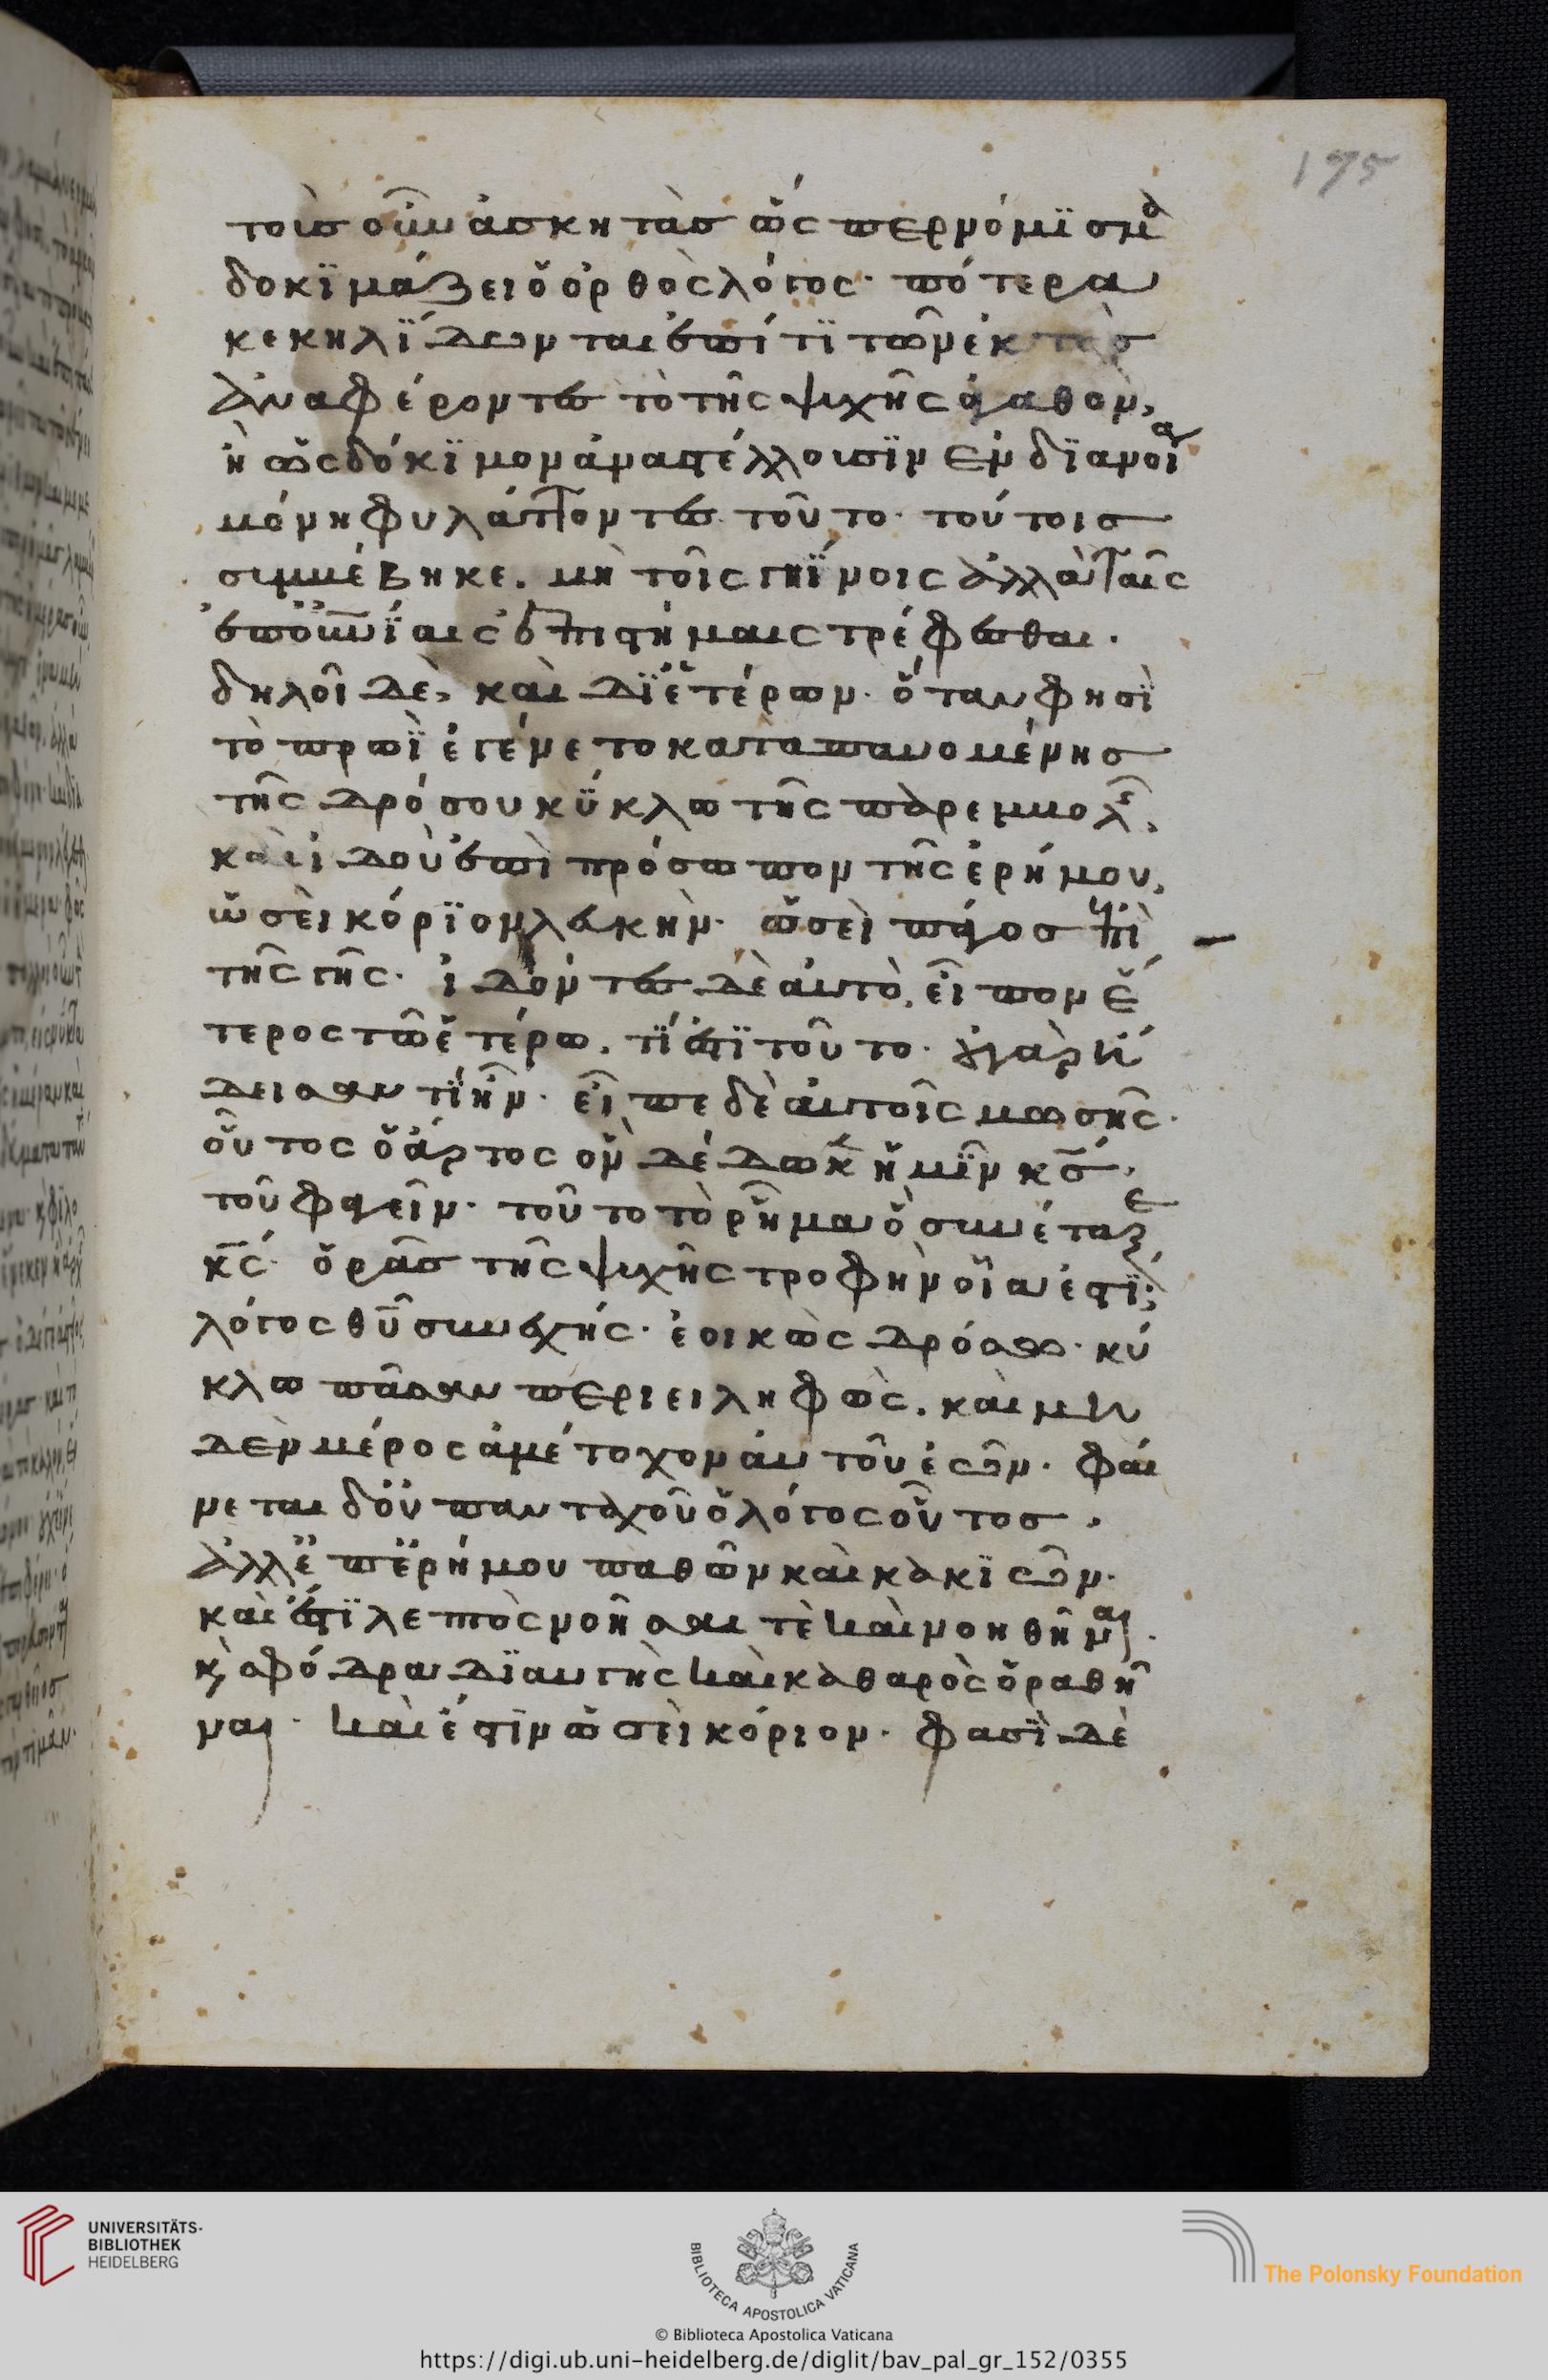 τοὺσ οὖν ἀσκητὰσ ὥς περ νόμϊσμα
δοκϊμάζει ὁ ὀρθὸς λόγος· πότερα
κεκηλΐδωνται ἐπί τϊ τῶν ἐκτὸσ
ἀναφέροντεσ τὸ τῆς ψυχῆς ἀγαθον,
ἢ ὡς δόκϊμον ἀναστέλλουσϊν ἐν δϊανοία
μόνη φυλάττοντεσ τοῦτο· τούτοισ
συμβέβηκε. μὴ τοῖς γηΐνοις ἀλλὰ ταῖς
ἐποὐνΐαις ἐπιστήμαις τρέφεσθαι.
δηλοῖ δὲ, καὶ δϊ ἑτέρων· ὅταν φησϊ
τὸ πρωῒ ἐγένετο καταπαυομένησ
τῆς δρόσου κΰκλω τῆς παρεμβολῆς,
καὶ ἰδοὺ ἐπὶ πρόσωπον τῆς ἐρήμου,
ὡσεὶ κόρϊον λεκὴν· ὡσεὶ πάγοσ ἐπὶ
τῆς γῆς· ἰδόντεσ δὲ αὐτὸ, εἶπον ἕ
τερος τῶ ἑτέρω. τΐ ἐστϊ τοῦτο· οὐ γὰρ ή
δεισαν τΐ ἦν· εἶπε δὲ αὐτοῖς μωσῆς·
οὗτος ὁ ἄρτος ὃν δέδωκε ἡμῖν κσ,
τοῦ φαγεῖν· τοῦτο τὸ ῥῆμα ὃ συνέταξε
κς· ὁρᾶσ τῆς ψυχῆς τροφὴν οἵα ἐστΐ;
λόγος θυ συνεχής· ἐοικὼς δρόσω· κύ
κλω πᾶσαν περιειληφὼς, καὶ μη
δὲν μέρος ἀμέτοχον αὐτοῦ ἐῶν· φαί
νεται δ οὐ πανταχοῦ ὁ λόγος οὗτοσ,
ἀλλ ἐπ ἐρήμου παθῶν καὶ κακϊῶν·
καὶ ἐστϊ λεπτὸς νοῆσαι τὲ καὶ νοηθῆναι·
κ σφόδρα δϊαυγὴς καὶ καθαρὸς ὁραθῆ
ναι· καὶ ἐστϊν ὡσεὶ κόριον· φασῒ δὲ
175
UNIVERSITÄTS-
BIBLIOTHEK
HEIDELBERG
BIBLIOTECA APOSTOLICA VATICANA
The Polonsky Foundation
© Biblioteca Apostolica Vaticana
https://digi.ub.uni-heidelberg.de/diglit/bav_pal_gr_152/0355